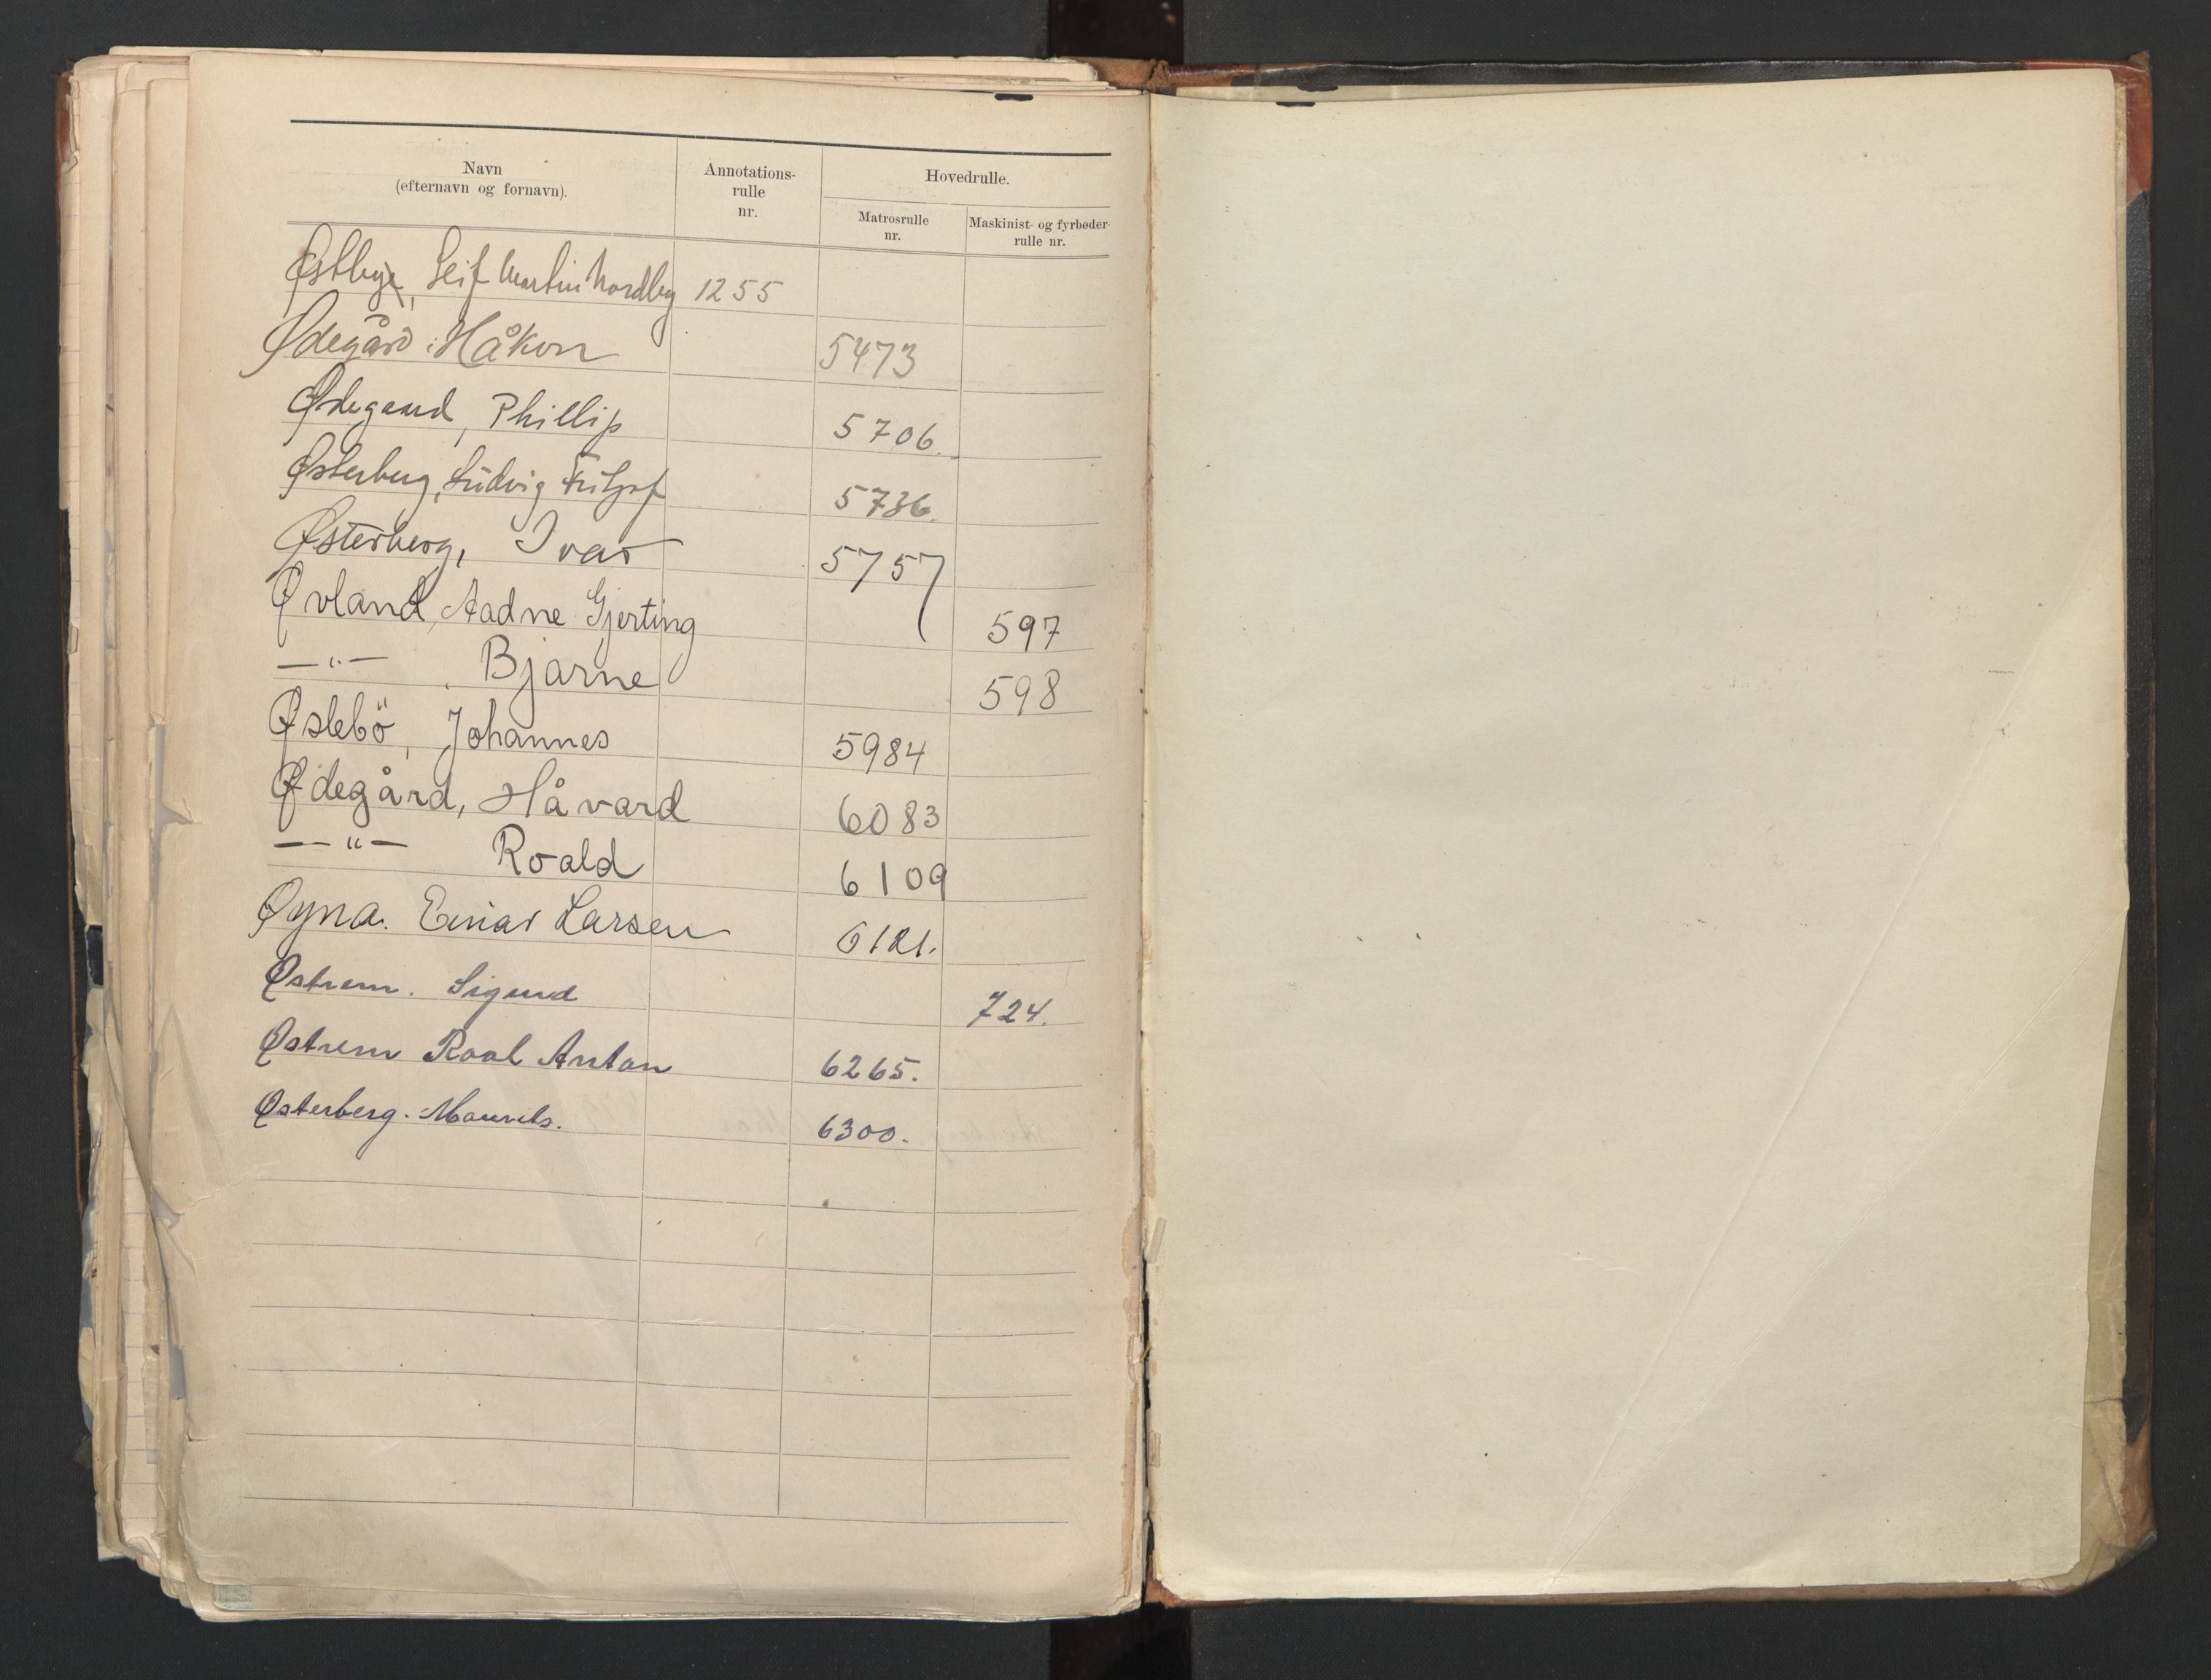 Navn
(efternavn og fornavn).
Annotations-
rulle
nr.
Hovedrulle.
Matrosrulle
nr.
Maskinist- og fyrbøder-
rulle nr.
Østbye, Leif Martin Nordby 1255
Ødegård, Håkon 5473
Ødegaard, Phillip 5706.
Østerberg, Ludvig Fritjof 5736.
Østerberg, Ivar 5757
Øvland, Aadne Gjerting 597
—"— Bjarne 598
Øslebö, Johannes 5984
Ødegård, Håvard 6083
—"— Roald 6109
Øyna. Einar Larsen 6121.
Østrem. Sigurd 724.
Østrem Roal Anton 6265.
Østerberg. 6300.